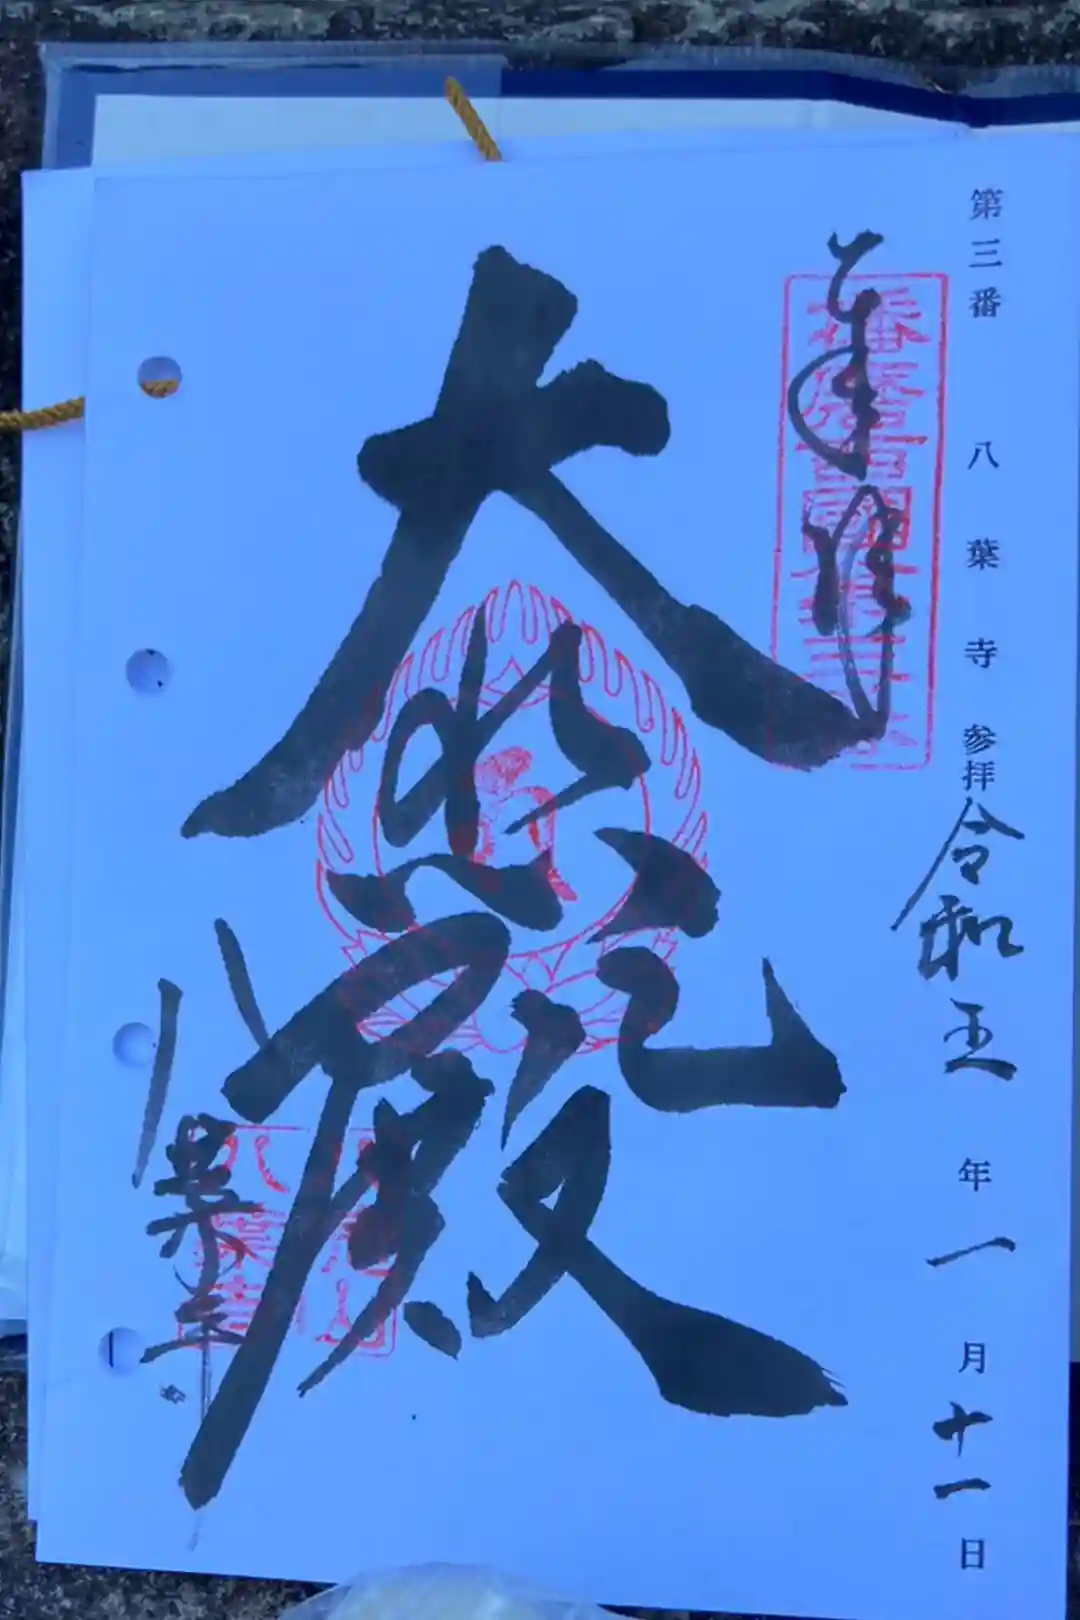 第三番 八葉寺 参拝 令和五年一月十一日
奉拝
大悲殿
八葉寺